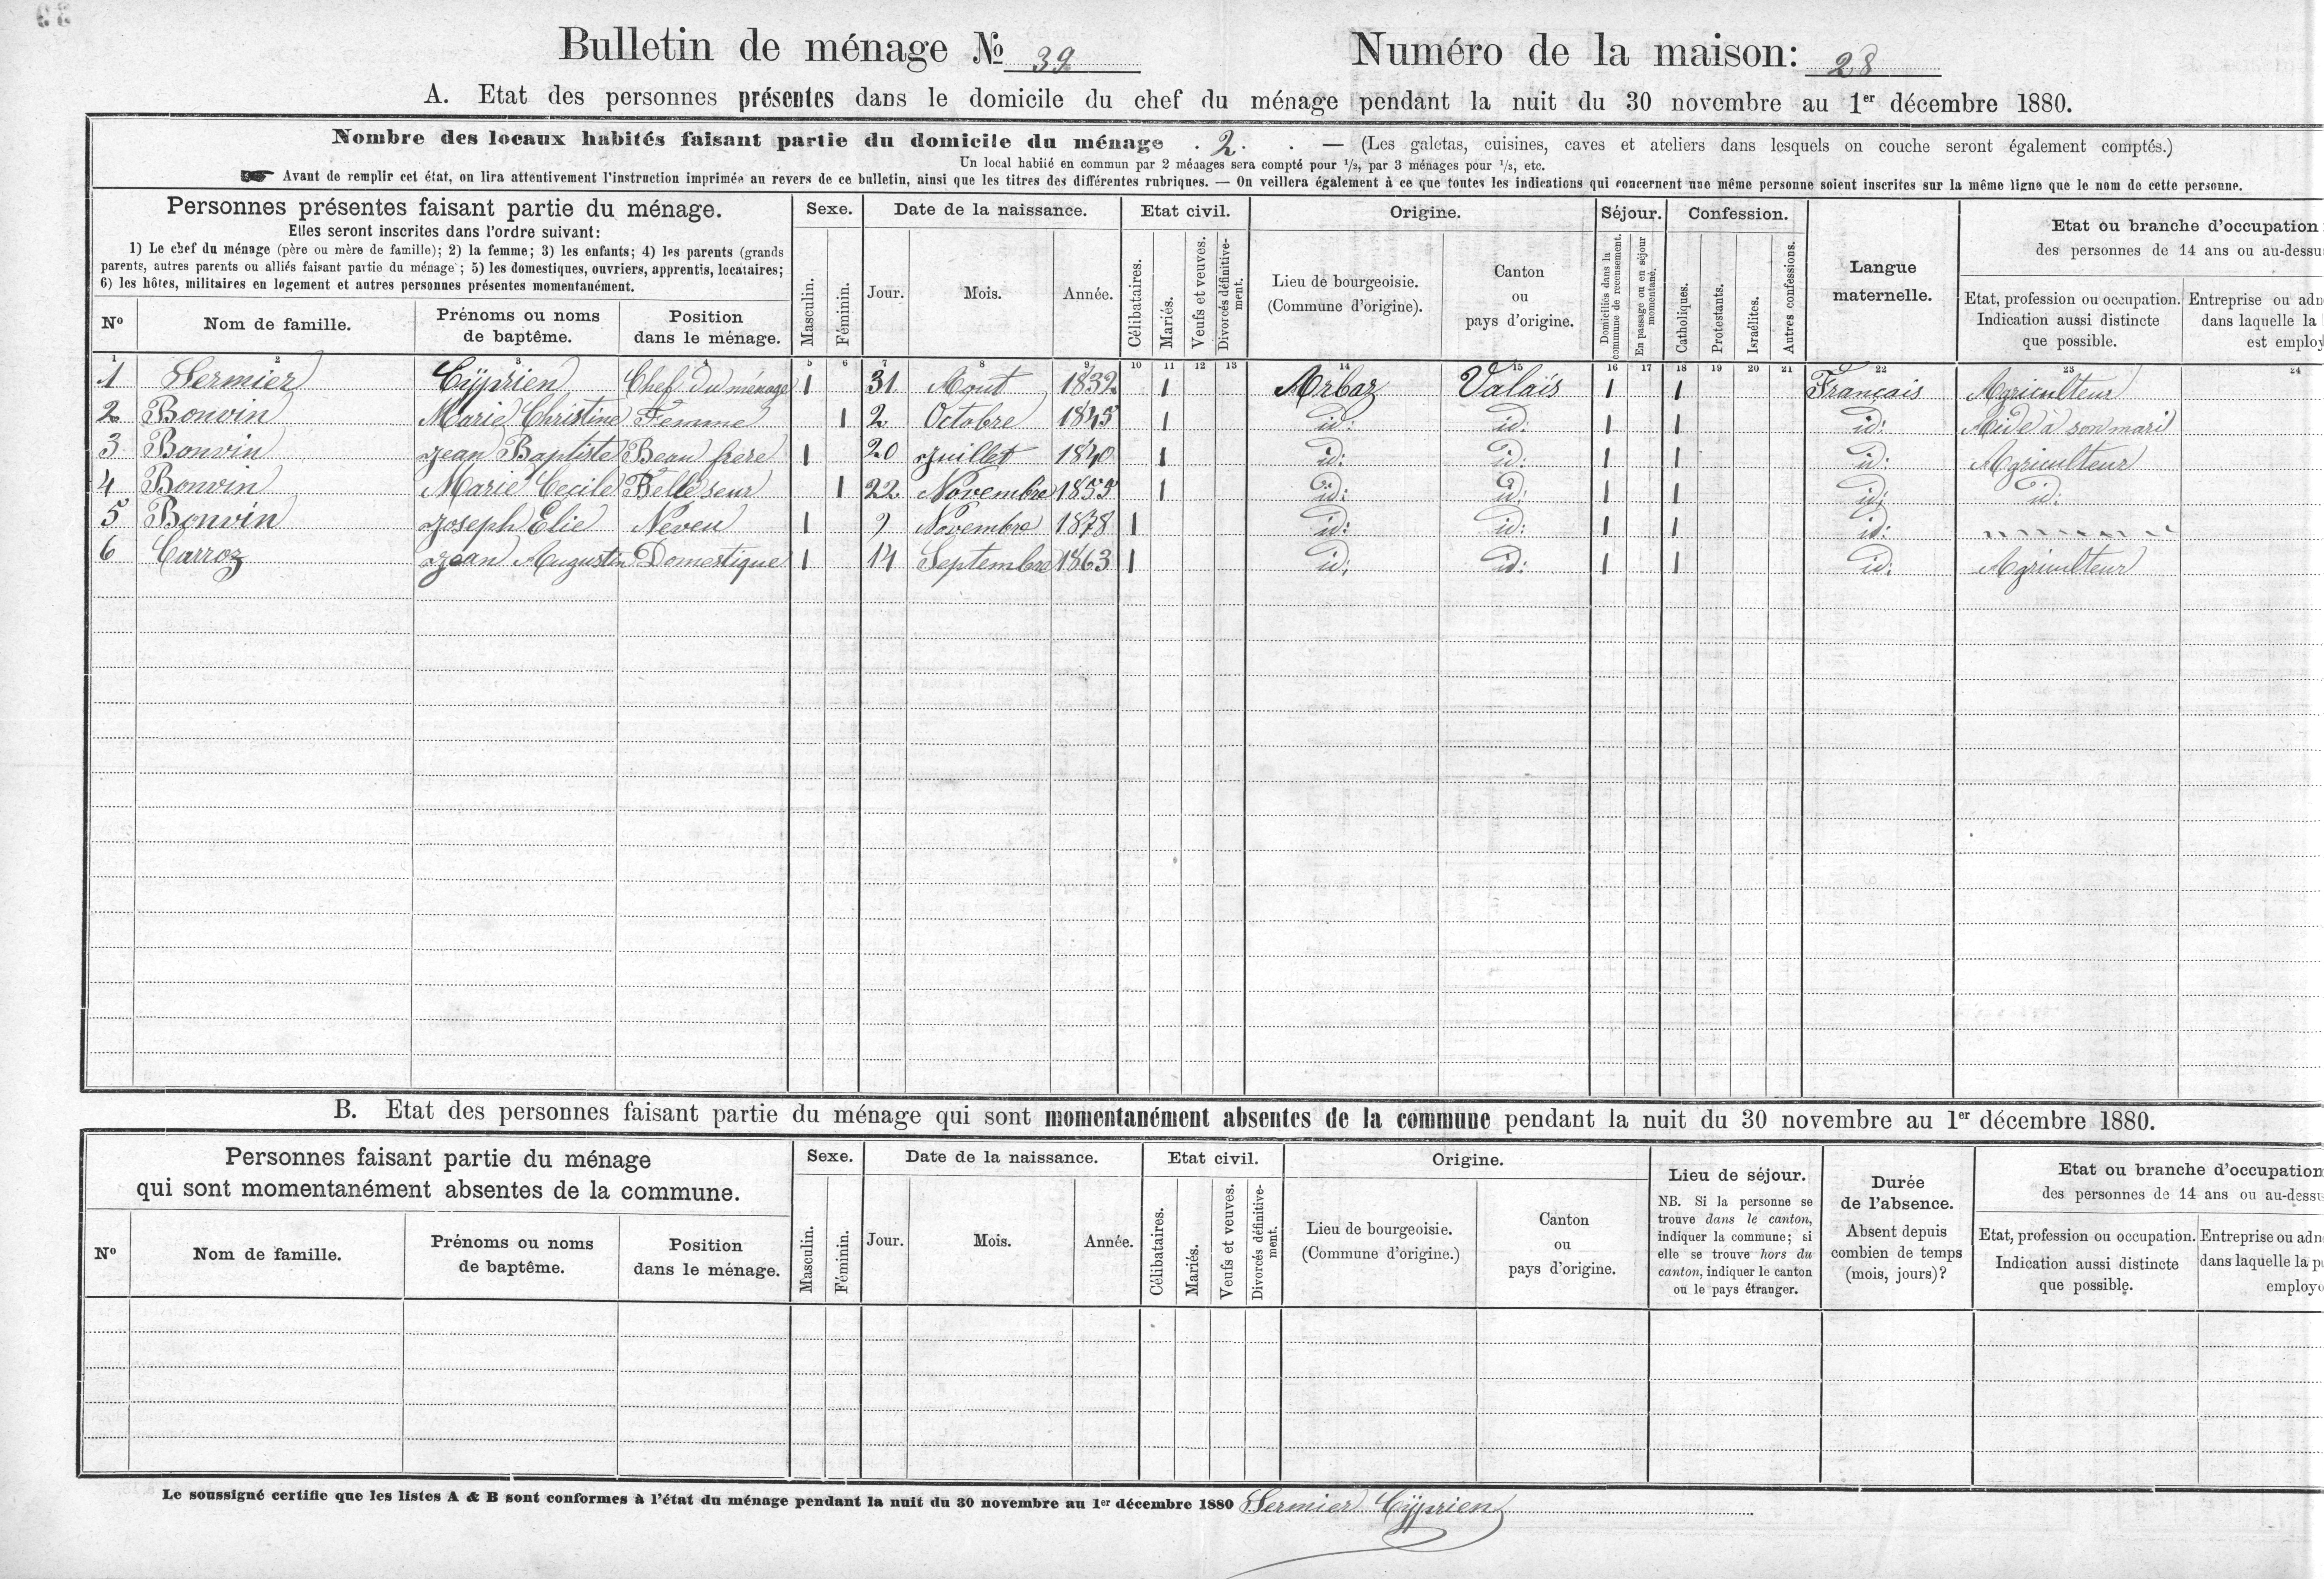 Bulletin de ménage № 39 Numéro de la maison: 28
A. Etat des personnes présentes dans le domicile du chef du ménage pendant la nuit du 30 novembre au 1er décembre 1880.
Nombre des locaux habités faisant partie du domicile du ménage . 2 . . — (Les galetas, cuisines, caves et ateliers dans lesquels on couche seront également comptés.)
Un local habité en commun par 2 ménages sera compté pour 1/2, par 3 ménages pour 1/3, etc.
Avant de remplir cet état, on lira attentivement l'instruction imprimée au revers de ce bulletin, ainsi que les titres des différentes rubriques. — On veillera également à ce que toutes les indications qui concernent une même personne soient inscrites sur la même ligne que le nom de cette personne.
Personnes présentes faisant partie du ménage. Sexe. Date de la naissance. Etat civil. Origine. Séjour. Confession. Langue maternelle. Etat ou branche d'occupation
Elles seront inscrites dans l'ordre suivant: des personnes de 14 ans ou au-dessu
1) Le chef du ménage (père ou mère de famille); 2) la femme; 3) les enfants; 4) les parents (grands
parents, autres parents ou alliés faisant partie du ménage; 5) les domestiques, ouvriers, apprentis, locataires;
6) les hôtes, militaires en logement et autres personnes présentes momentanément.
N° Nom de famille. Prénoms ou noms de baptême. Position dans le ménage. Masculin. Féminin. Jour. Mois. Année. Célibataires. Mariés. Veufs et veuves. Divorcés définitivement. Lieu de bourgeoisie. (Commune d'origine). Canton ou pays d'origine. Domiciliés dans la commune de recensement. En passage ou en séjour momentané. Catholiques. Protestants. Israélites. Autres confessions. Etat, profession ou occupation. Indication aussi distincte que possible. Entreprise ou adn dans laquelle la est employ
1 2 3 4 5 6 7 8 9 10 11 12 13 14 15 16 17 18 19 20 21 22 23 24
1 Sermier Cÿprien Chef du ménage 1 31 Aout 1832 1 Arbaz Valais 1 1 Français Agriculteur
2 Bonvin Marie Christine Femme 1 2 Octobre 1845 1 id: id: 1 1 id: Aide à son mari
3 Bonvin Jean Baptiste Beau frere 1 20 Juillet 1840 1 id: id: 1 1 id: Agriculteur
4 Bonvin Marie Cecile Belle seur 1 22 Novembre 1855 1 id: id: 1 1 id: id:
5 Bonvin Joseph Elie Neveu 1 9 Novembre 1878 1 id: id: 1 1 id:
6 Carroz Jean Augustin Domestique 1 14 Septembre 1863 1 id: id: 1 1 id: Agriculteur
B. Etat des personnes faisant partie du ménage qui sont momentanément absentes de la commune pendant la nuit du 30 novembre au 1er décembre 1880.
Personnes faisant partie du ménage Sexe. Date de la naissance. Etat civil. Origine. Lieu de séjour. Durée de l'absence. Etat ou branche d'occupation
qui sont momentanément absentes de la commune. des personnes de 14 ans ou au-dessu
N° Nom de famille. Prénoms ou noms de baptême. Position dans le ménage. Masculin. Féminin. Jour. Mois. Année. Célibataires. Mariés. Veufs et veuves. Divorcés définitivement. Lieu de bourgeoisie. (Commune d'origine.) Canton ou pays d'origine. NB. Si la personne se trouve dans le canton, indiquer la commune; si elle se trouve hors du canton, indiquer le canton ou le pays étranger. Absent depuis combien de temps (mois, jours)? Etat, profession ou occupation. Indication aussi distincte que possible. Entreprise ou adn dans laquelle la p employé
Le soussigné certifie que les listes A & B sont conformes à l'état du ménage pendant la nuit du 30 novembre au 1er décembre 1880 Sermier Cÿprien